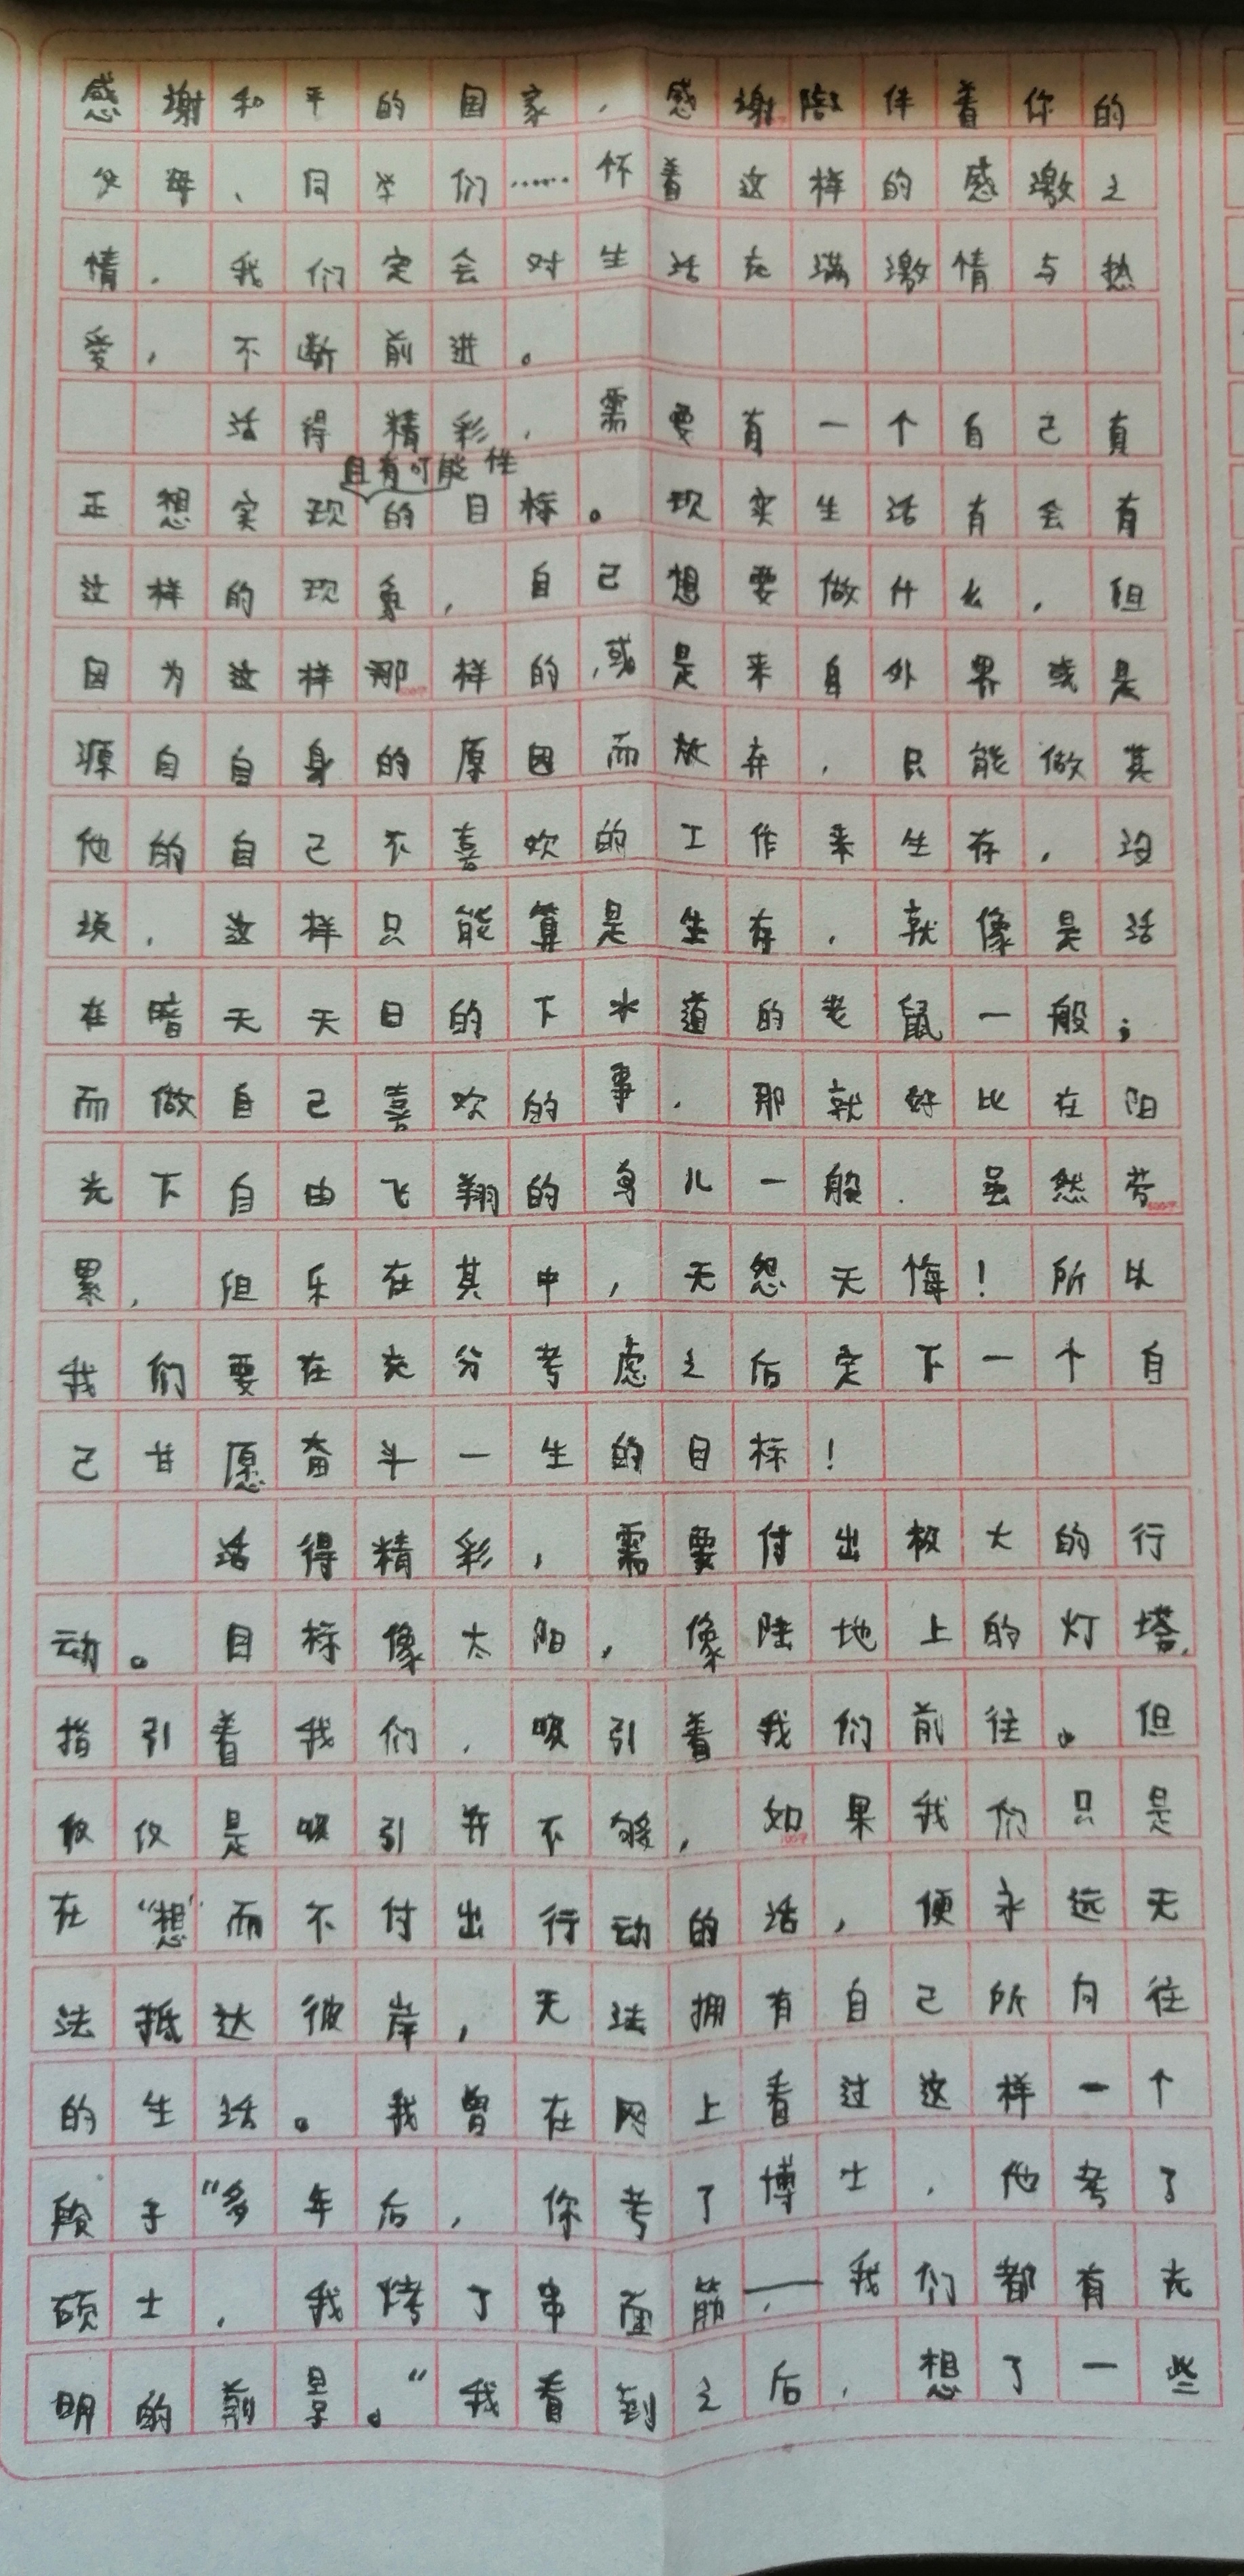 感谢和平的国家，感谢陪伴着你的
父母、同学们……怀着这样的感激之
情，我们定会对生活充满激情与热
爱，不断前进。
活得精彩，需要有一个自己真
且有可能性
正想实现的目标。现实生活有会有
这样的现象，自己想要做什么，但
因为这样那样的，或是来自外界或是
源自自身的原因而放弃，只能做其
他的自己不喜欢的工作来生存，没
错，这样只能算是生存，就像是活
在暗无天日的下水道的老鼠一般；
而做自己喜欢的事，那就好比在阳
光下自由飞翔的鸟儿一般，虽然劳
累，但乐在其中，无怨无悔！所以
我们要在充分考虑之后定下一个自
己甘愿奋斗一生的目标！
活得精彩，需要付出极大的行
动。目标像太阳，像陆地上的灯塔，
指引着我们，吸引着我们前往。但
仅仅是吸引并不够，如果我们只是
在“想”而不付出行动的话，便永远无
法抵达彼岸，无法拥有自己所向往
的生活。我曾在网上看过这样一个
段子“多年后，你考了博士，他考了
硕士，我烤了串面筋，——我们都有光
明的前景。”我看到之后，想了一些